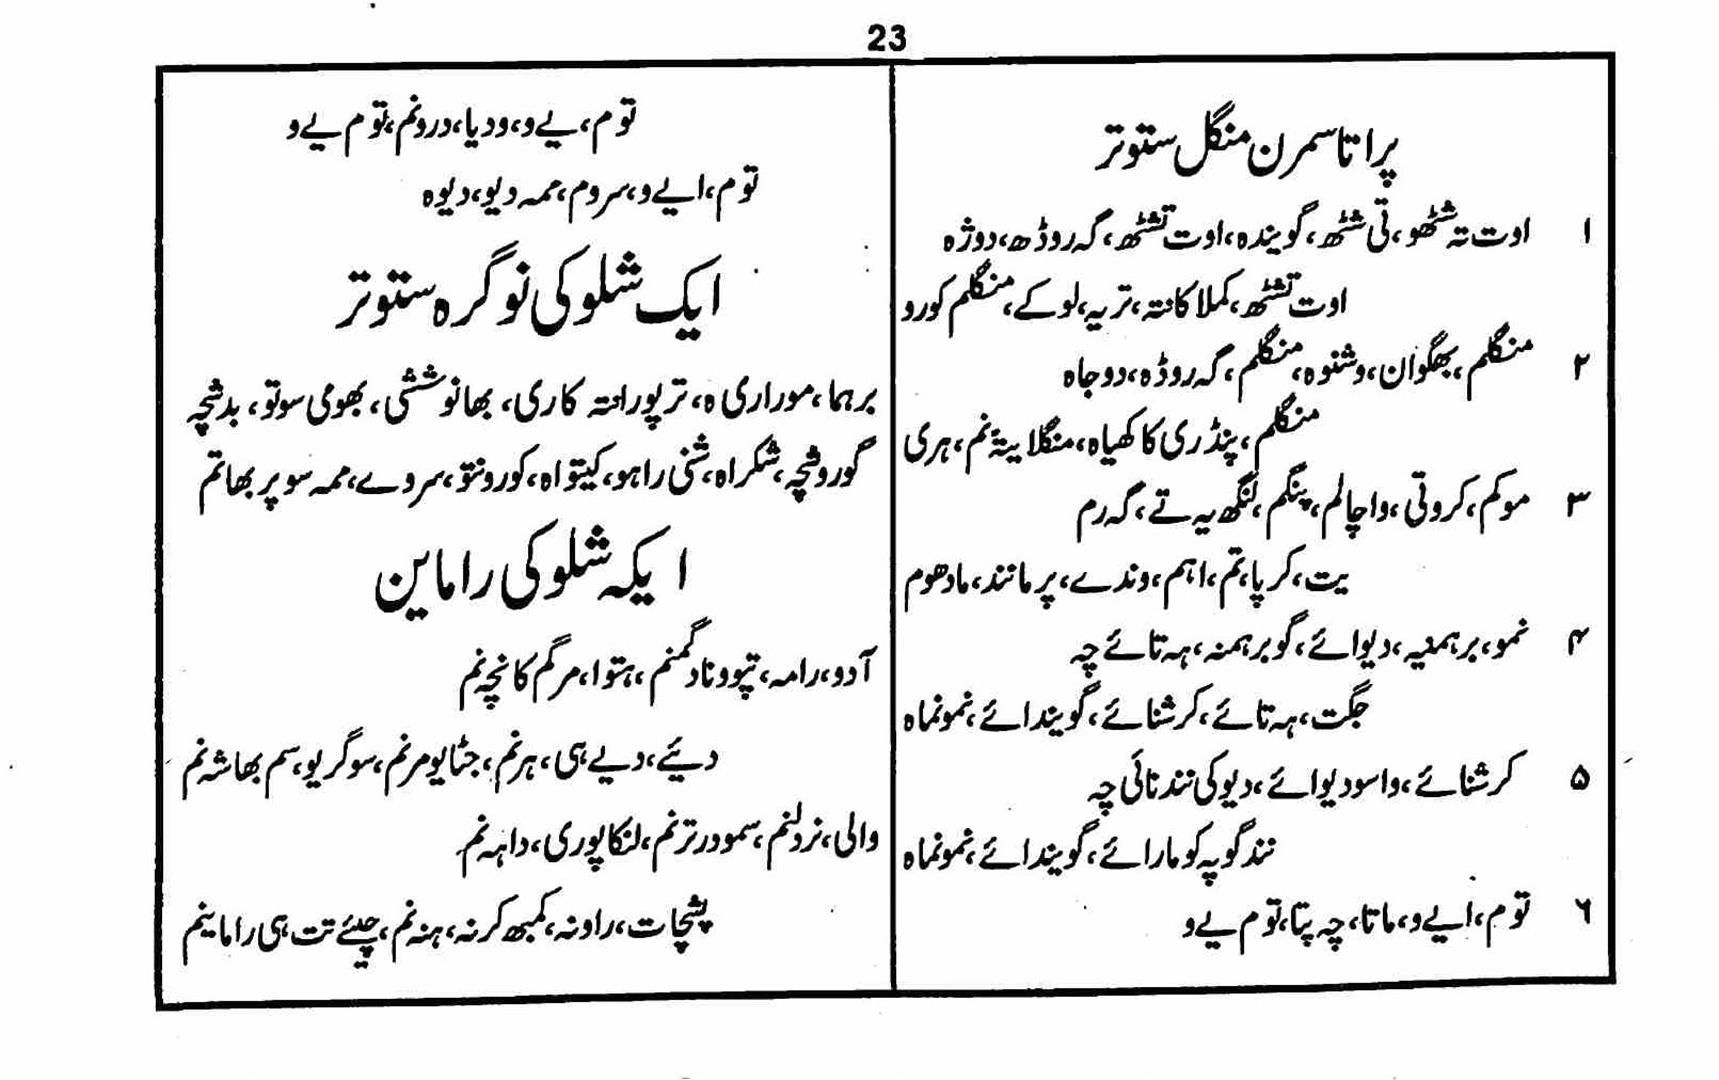 23
پراتا سمرن منگل ستوتر
۱ اوت تہ شٹھو، تی شٹھ، گویندہ، اوت تشٹھ، گہ روڈھ، دوژہ
اوت تشٹھ، کملا کانتہ، تریہ، لوکے، منگلم کورو
۲ منگلم، بھگوان، وشنوہ، منگلم، گہ روڈہ، دوجاہ
منگلم، پنڈری کاکھیاہ، منگلایتہٗ نم، ہری
۳ موکم، کروتی، واچالم، پنگم، لنگھ یہ تے، گہ رم
یت، کرپا، تم، اہم، وندے، پرمانند، مادھوم
۴ نمو، برہمنیہ، دیوائے، گو برہمنہ، ہہ تائے چہ
جگت، ہہ تائے، کرشنائے، گویندائے، نمونماہ
۵ کرشنائے، واسودیوائے، دیوکی نندنائی چہ
نندگوپہ کومارائے، گویندائے، نمونماہ
۶ توم، ایے و، ماتا، چہ پتا، توم یے و
توم، یے و، ودیا، درونم، توم یے و
توم، ایے و، سروم، ممہ دیو، دیوہ
ایک شلوکی نوگرہ ستوتر
برہما، موراری ہ، ترپورانتہ کاری، بھانوششی، بھومی سوتو، بدشچہ
گوروشچہ، شکراہ، شنی راہو، کیتواہ، کورونتو، سروے، ممہ سوپربھاتم
ایکہ شلوکی راماین
آدو، رامہ، تپوونادگمنم، ہتوا، مرگم کانچہ نم
دیئے، دیے ہی، ہرنم، جٹایو مرنم، سوگریو، سم بھاشہ نم
والی، نردلنم، سمودر ترنم، لنکاپوری، داہہ نم
پشچات، راونہ، کمبھ کرنہ، ہنہ نم، چیئے تت ہی راماینم